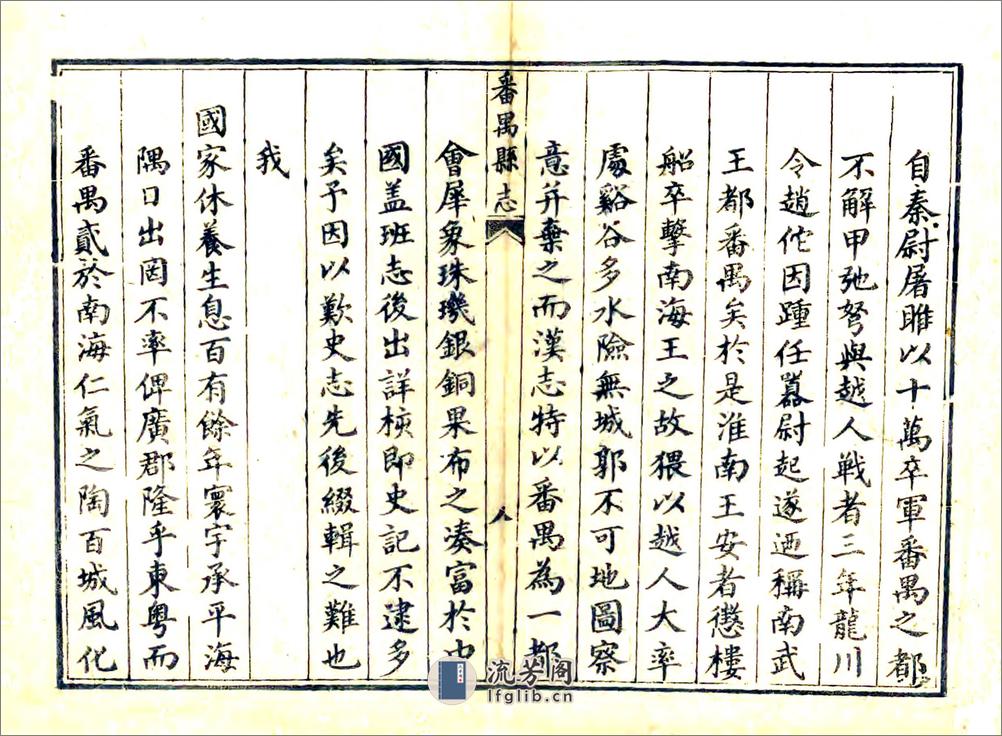 自秦尉屠睢以十萬卒軍番禺之都
不解甲弛弩與越人戰者三年龍川
令趙佗因踵任囂尉起遂迺稱南武
王都番禺矣於是淮南王安者懲樓
船卒擊南海王之故猥以越人大率
處谿谷多水險無城郭不可地圖察
意并棄之而漢志特以番禺為一都
番禺縣志
八
會犀象珠璣銀銅果布之凑富於中
國盖班志後出詳核即史記不逮多
矣予因以歎史志先後綴輯之難也
我
國家休養生息百有餘年寰宇承平海
隅日出罔不率俾廣郡隆乎東粤而
番禺貳於南海仁氣之陶百城風化
流芳阁
lfglib.cn